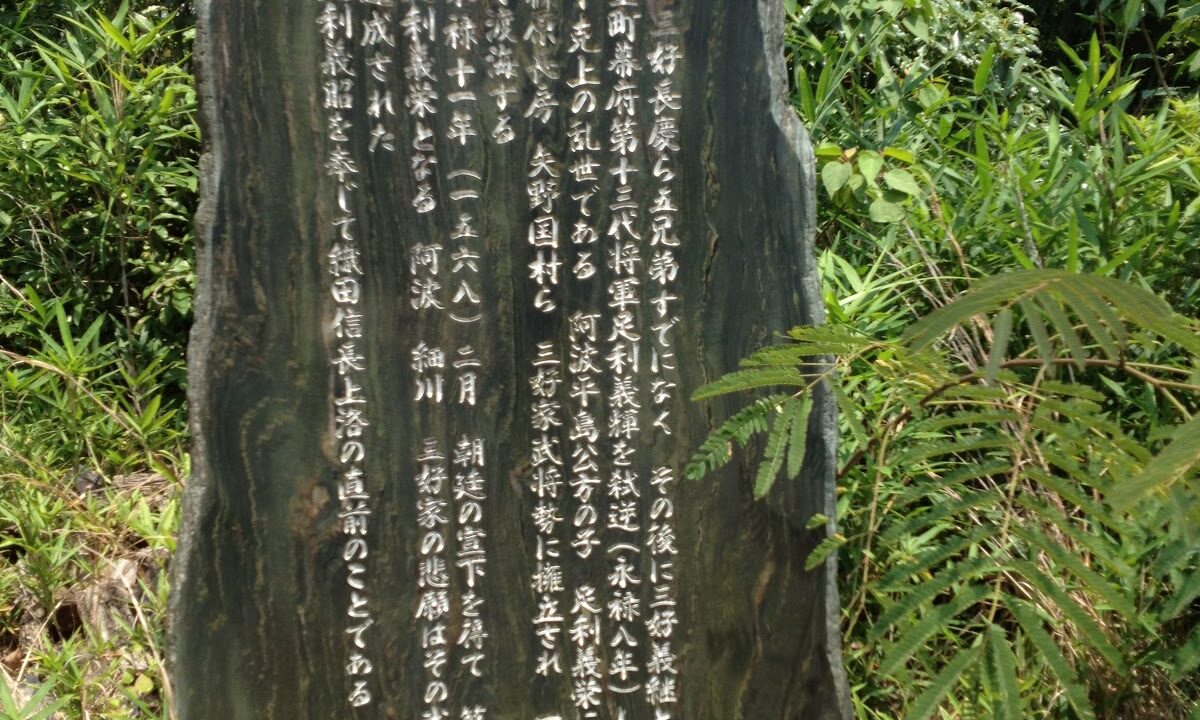 三好長慶ら五兄弟すでになく その後に三好義継と
町幕府第十三代将軍足利義輝を弑逆（永禄八年）し
克上の乱世である 阿波平島公方の子 足利義栄に
原長房 矢野国村ら 三好家武将勢に擁立され
渡海する
禄十一年（一五六八）二月 朝廷の宣下を得て 第
利義栄となる 阿波 細川 三好家の悲願はその
成された
利義昭を奉じて織田信長上洛の直前のことである